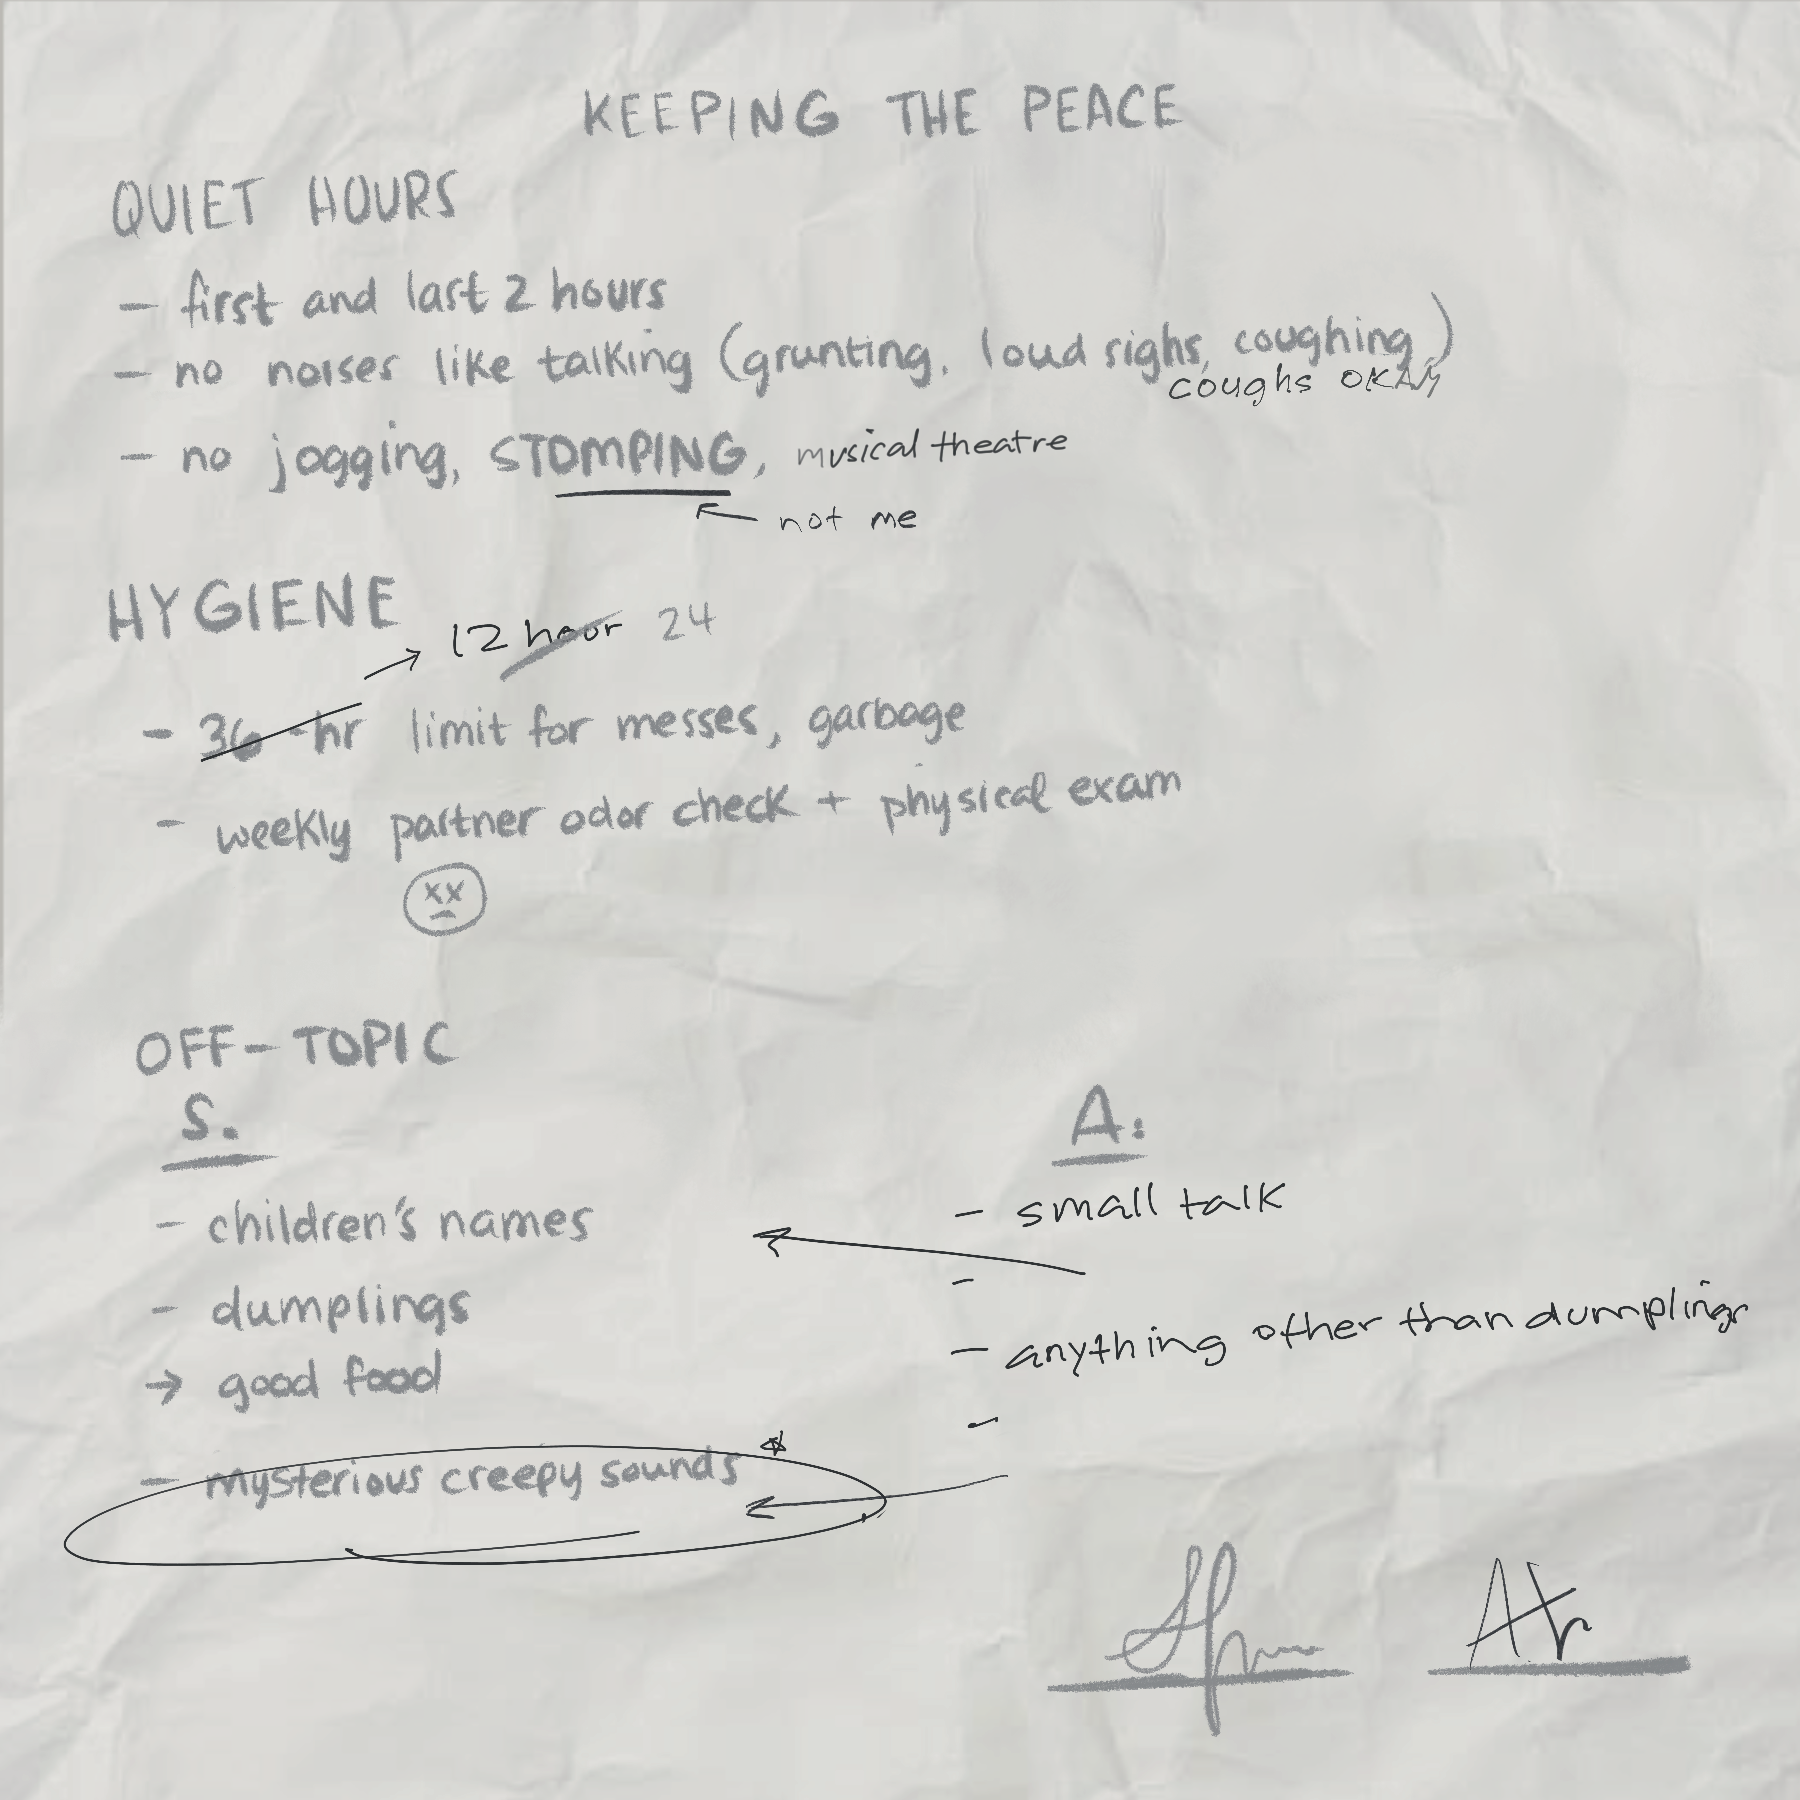 KEEPING THE PEACE
QUIET HOURS
- first and last 2 hours
- no noises like talking (grunting, loud sighs, coughing)
coughs OKAY
- no jogging, STOMPING, musical theatre
← not me
HYGIENE
→ 12 hour 24
- 36-hr limit for messes, garbage
- weekly partner odor check + physical exam
OFF-TOPIC
S.
- children's names
- dumplings
→ good food
- mysterious creepy sounds
A:
- small talk
-
- anything other than dumplings
-